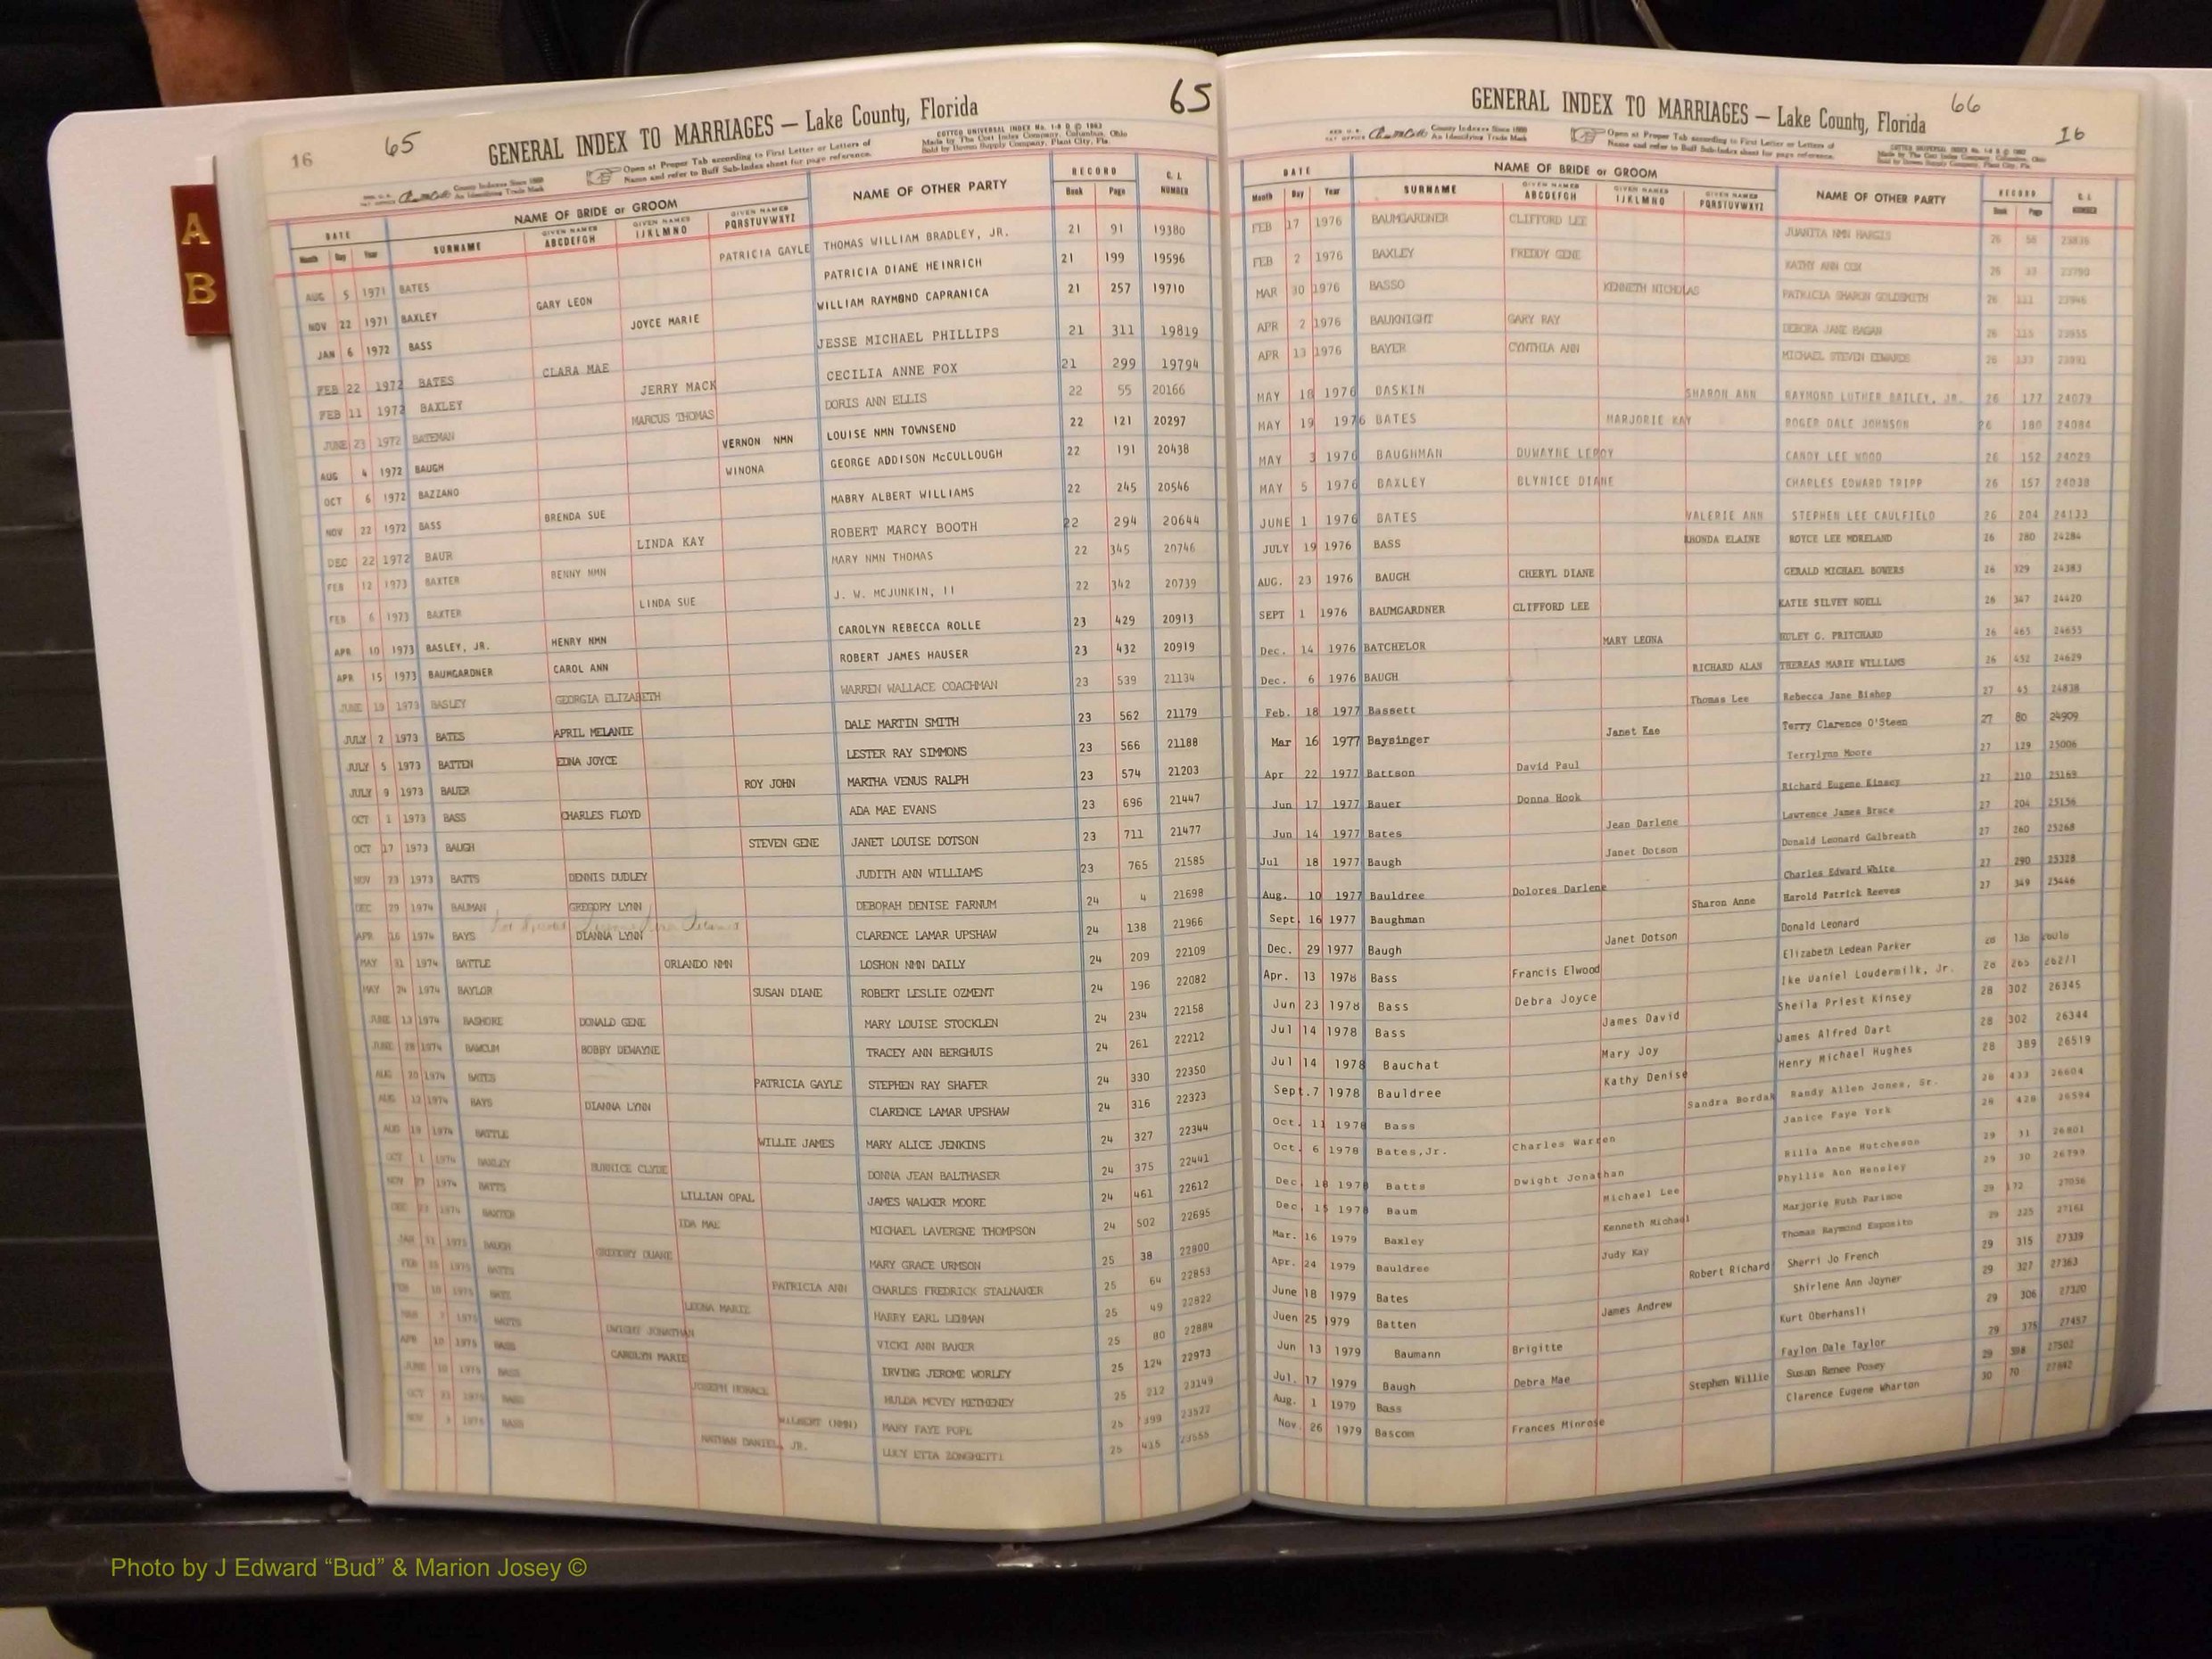 A
B
16
65
65
GENERAL INDEX TO MARRIAGES — Lake County, Florida
County Indexes Since 1888
An Identifying Trade Mark
Open at Proper Tab according to First Letter or Letters of
Name and refer to Buff Sub-Index sheet for page reference.
COTTCO UNIVERSAL INDEX No.
Made by The Cott Index Company, Columbus, Ohio
Sold by Bowen Supply Company, Plant City, Fla.
DATE NAME OF BRIDE or GROOM NAME OF OTHER PARTY RECORD
Month Day Year SURNAME GIVEN NAMES ABCDEFGH GIVEN NAMES IJKLMNO GIVEN NAMES PQRSTUVWXYZ Book Page NUMBER
AUG 5 1971 BATES PATRICIA GAYLE THOMAS WILLIAM BRADLEY, JR. 21 91 19380
NOV 22 1971 BAXLEY GARY LEON PATRICIA DIANE HEINRICH 21 199 19596
JAN 6 1972 BASS JOYCE MARIE WILLIAM RAYMOND CAPRANICA 21 257 19710
FEB 22 1972 BATES CLARA MAE JESSE MICHAEL PHILLIPS 21 311 19819
FEB 11 1972 BAXLEY JERRY MACK CECILIA ANNE FOX 21 299 19794
JUNE 23 1972 BATEMAN MARCUS THOMAS DORIS ANN ELLIS 22 55 20166
AUG 4 1972 BAUGH VERNON NMN LOUISE NMN TOWNSEND 22 121 20297
OCT 6 1972 BAZZANO WINONA GEORGE ADDISON McCULLOUGH 22 191 20438
NOV 22 1972 BASS BRENDA SUE MABRY ALBERT WILLIAMS 22 245 20546
DEC 22 1972 BAUR LINDA KAY ROBERT MARCY BOOTH 22 294 20644
FEB 12 1973 BAXTER BENNY NMN MARY NMN THOMAS 22 345 20746
FEB 6 1973 BAXTER LINDA SUE J. W. MCJUNKIN, II 22 342 20739
APR 10 1973 BASLEY, JR. HENRY NMN CAROLYN REBECCA ROLLE 23 429 20913
APR 15 1973 BAUMGARDNER CAROL ANN ROBERT JAMES HAUSER 23 432 20919
JUNE 19 1973 BASLEY GEORGIA ELIZABETH WARREN WALLACE COACHMAN 23 539 21134
JULY 2 1973 BATES APRIL MELANIE DALE MARTIN SMITH 23 562 21179
JULY 5 1973 BATTEN EDNA JOYCE LESTER RAY SIMMONS 23 566 21188
JULY 9 1973 BAUER ROY JOHN MARTHA VENUS RALPH 23 574 21203
OCT 1 1973 BASS CHARLES FLOYD ADA MAE EVANS 23 696 21447
OCT 17 1973 BAUGH STEVEN GENE JANET LOUISE DOTSON 23 711 21477
NOV 23 1973 BATTS DENNIS DUDLEY JUDITH ANN WILLIAMS 23 765 21585
DEC 29 1974 BAUMAN GREGORY LYNN DEBORAH DENISE FARNUM 24 4 21698
APR 16 1974 BAYS DIANNA LYNN CLARENCE LAMAR UPSHAW 24 138 21966
MAY 31 1974 BATTLE ORLANDO NMN LOSHON NMN DAILY 24 209 22109
MAY 24 1974 BAYLOR SUSAN DIANE ROBERT LESLIE OZMENT 24 196 22082
JUNE 13 1974 BASHORE DONALD GENE MARY LOUISE STOCKLEN 24 234 22158
JUNE 28 1974 BOBBY DEWAYNE TRACEY ANN BERGHUIS 24 261 22212
AUG 20 1974 BATES PATRICIA GAYLE STEPHEN RAY SHAFER 24 330 22350
AUG 12 1974 BAYS DIANNA LYNN CLARENCE LAMAR UPSHAW 24 316 22323
AUG 19 1974 BATTLE WILLIE JAMES MARY ALICE JENKINS 24 327 22344
OCT 1 1974 BAXLEY BURNICE CLYDE DONNA JEAN BALTHASER 24 375 22441
NOV 27 1974 BATTS LILLIAN OPAL JAMES WALKER MOORE 24 461 22612
DEC 23 1974 BAXTER IDA MAE MICHAEL LAVERGNE THOMPSON 24 502 22695
JAN 1975 BAUGH GREGORY DUANE MARY GRACE URMSON 25 38 22800
FEB 1975 BATTS PATRICIA ANN CHARLES FREDRICK STALNAKER 25 64 22853
FEB 10 1975 LEONA MARIE HARRY EARL LEHMAN 25 49 22822
MAR 7 1975 BATTS DWIGHT JONATHAN VICKI ANN BAKER 25 80 22884
APR 10 1975 BASS CAROLYN MARIE IRVING JEROME WORLEY 25 124 22973
JUNE 10 1975 BASS JOSEPH HORACE HULDA MCVEY METHENEY 25 212 23149
OCT 1975 BASS WILBERT (NMN) MARY FAYE POPE 25 399 23522
NOV 1975 BASS NATHAN DANIEL, JR. LUCY ETTA ZONGHETTI 25 415
66
16
GENERAL INDEX TO MARRIAGES — Lake County, Florida
County Indexes Since 1888
An Identifying Trade Mark
Open at Proper Tab according to First Letter or Letters of
Name and refer to Buff Sub-Index sheet for page reference.
DATE NAME OF BRIDE or GROOM NAME OF OTHER PARTY RECORD
Month Day Year SURNAME GIVEN NAMES ABCDEFGH GIVEN NAMES IJKLMNO GIVEN NAMES PQRSTUVWXYZ Book Page NUMBER
FEB 17 1976 BAUMGARDNER CLIFFORD LEE JUANITA NMN HARGIS 26 58
FEB 2 1976 BAXLEY FREDDY GENE KATHY ANN COX 26 33 23790
MAR 30 1976 BASSO KENNETH NICHOLAS PATRICIA SHARON GOLDSMITH 26 111
APR 2 1976 BAUKNIGHT GARY RAY DEBORA JANE HAGAN 26 115
APR 13 1976 BAYER CYNTHIA ANN MICHAEL STEVEN EDWARDS 26 133
MAY 18 1976 BASKIN SHARON ANN RAYMOND LUTHER BAILEY, JR. 26 177 24079
MAY 19 1976 BATES MARJORIE KAY ROGER DALE JOHNSON 26 180 24084
MAY 3 1976 BAUGHMAN DUWAYNE LEROY CANDY LEE WOOD 26 152 24029
MAY 5 1976 BAXLEY GLYNICE DIANE CHARLES EDWARD TRIPP 26 157 24038
JUNE 1 1976 BATES VALERIE ANN STEPHEN LEE CAULFIELD 26 204 24133
JULY 19 1976 BASS RHONDA ELAINE ROYCE LEE MORELAND 26 280 24284
AUG. 23 1976 BAUGH CHERYL DIANE GERALD MICHAEL BOWERS 26 329 24383
SEPT 1 1976 BAUMGARDNER CLIFFORD LEE KATIE SILVEY NOELL 26 347 24420
Dec. 14 1976 BATCHELOR MARY LEONA HULEY G. PRITCHARD 26 465 24655
Dec. 6 1976 BAUGH RICHARD ALAN THEREAS MARIE WILLIAMS 26 452 24629
Feb. 18 1977 Bassett Thomas Lee Rebecca Jane Bishop 27 45 24838
Mar 16 1977 Baysinger Janet Kae Terry Clarence O'Steen 27 80 24909
Apr 22 1977 Battson David Paul Terrylynn Moore 27 129 25006
Jun 17 1977 Bauer Donna Hook Richard Eugene Kinsey 27 210 25169
Jun 14 1977 Bates Jean Darlene Lawrence James Bruce 27 204 25156
Jul 18 1977 Baugh Janet Dotson Donald Leonard Galbreath 27 260 25268
Aug. 10 1977 Bauldree Dolores Darlene Charles Edward White 27 290 25328
Sept. 16 1977 Baughman Sharon Anne Harold Patrick Reeves 27 349 25446
Dec. 29 1977 Baugh Janet Dotson Donald Leonard
Apr. 13 1978 Bass Francis Elwood Elizabeth Ledean Parker 28 136
Jun 23 1978 Bass Debra Joyce Ike Daniel Loudermilk, Jr. 28 265 26271
Jul 14 1978 Bass James David Sheila Priest Kinsey 28 302 26345
Jul 14 1978 Bauchat Mary Joy James Alfred Dart 28 302 26344
Sept.7 1978 Bauldree Kathy Denise Henry Michael Hughes 28 389 26519
Oct. 11 1978 Bass Sandra Bordak Randy Allen Jones, Sr. 28 433 26604
Oct. 6 1978 Bates,Jr. Charles Warren Janice Faye York 28 428 26594
Dec 18 1978 Batts Dwight Jonathan Rilla Anne Hutcheson 29 31 26801
Dec. 15 1978 Baum Michael Lee Phyllis Ann Hensley 29 30 26799
Mar. 16 1979 Baxley Kenneth Michael Marjorie Ruth Parisoe 29 172 27056
Apr. 24 1979 Bauldree Judy Kay Thomas Raymond Esposito 29 225 27161
June 18 1979 Bates Robert Richard Sherri Jo French 29 315 27339
Juen 25 1979 Batten James Andrew Shirlene Ann Joyner 29 327 27363
Jun 13 1979 Baumann Brigitte Kurt Oberhansli 29 306 27320
Jul. 17 1979 Baugh Debra Mae Faylon Dale Taylor 29 375 27457
Aug. 1 1979 Bass Stephen Willie Susan Renee Posey 29 398 27502
Nov. 26 1979 Bascom Frances Minrose Clarence Eugene Wharton 30 70
Photo by J Edward “Bud” & Marion Josey ©